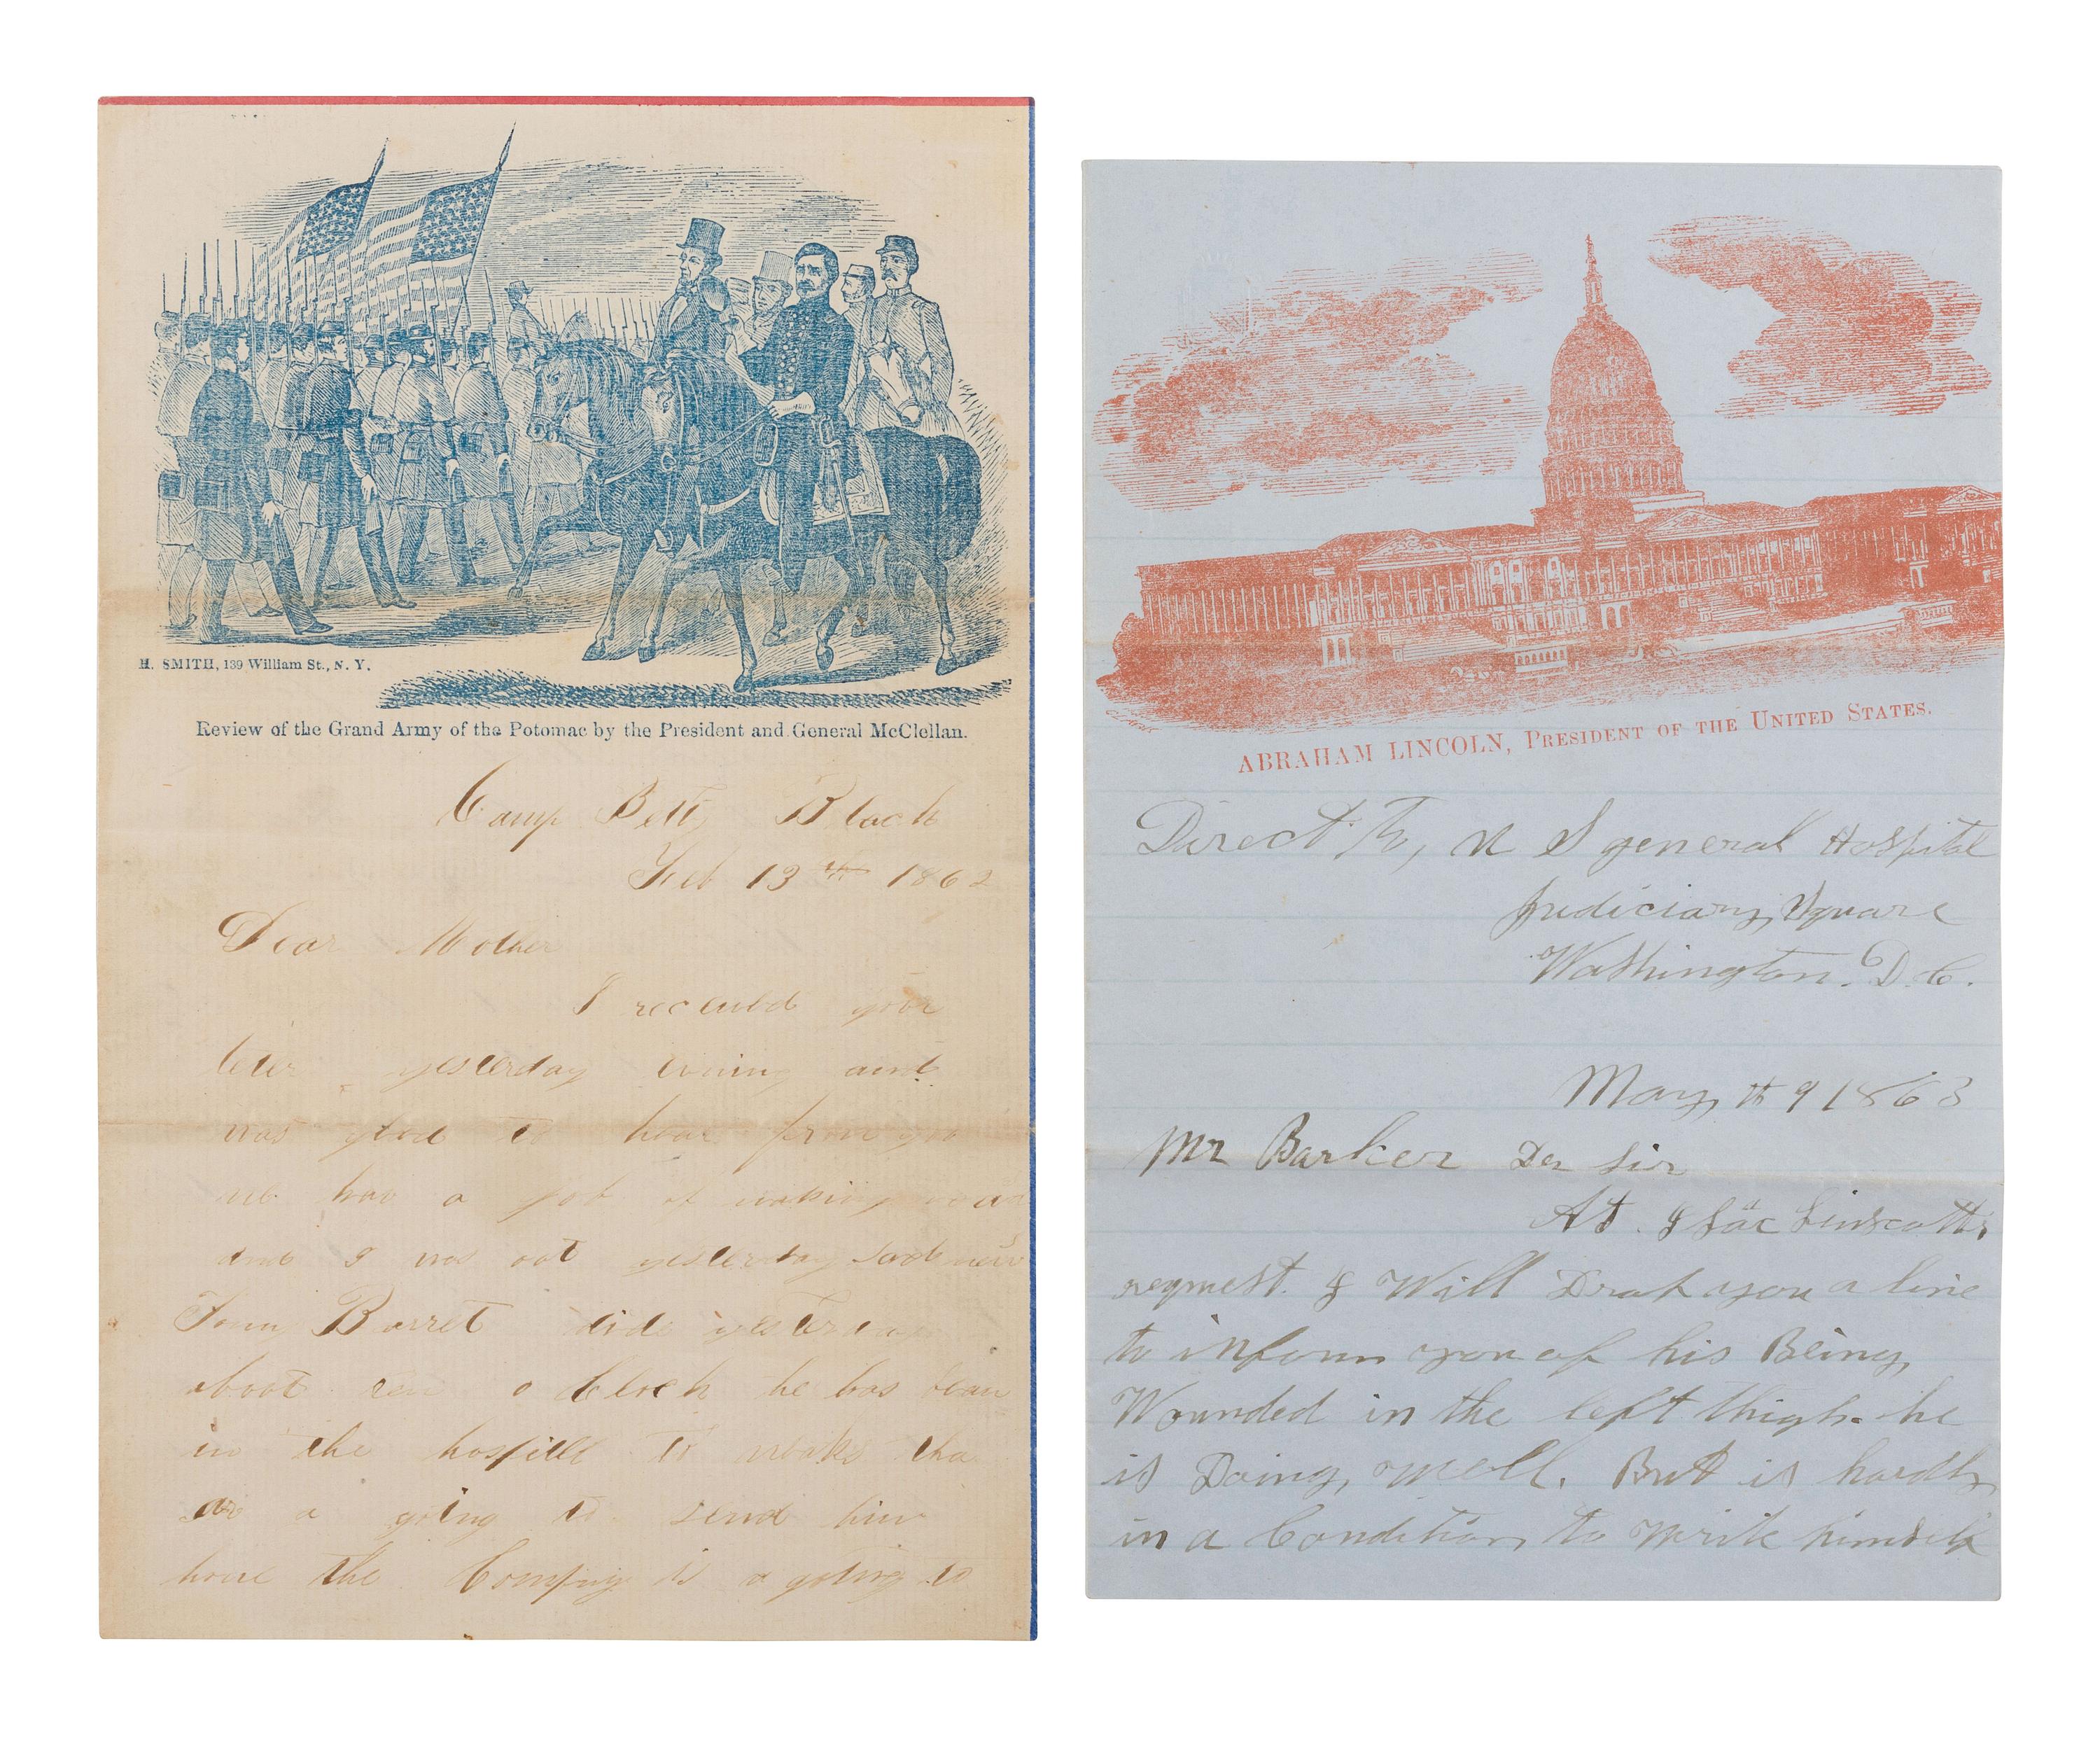 H. SMITH, 139 William St., N. Y.
Review of the Grand Army of the Potomac by the President and General McClellan.
Camp Black
Feb 13th 1862
Dear Mother
I receuld your
leter yesterday evining and
was glad to hear from you
we hav a job of
and I was oot yesterday
Barret did yesterday
aboot ten o clock he has bean
in the hospitle to weaks tha
are a going to send him
home the Company is a going to
ABRAHAM LINCOLN, PRESIDENT OF THE UNITED STATES.
Direct To, U S general Hospital
Judiciary Square
Washington. D. C.
May th 9 1863
Mr Barker Der Sir
At
request I Will Drop you a line
to inform you of his Being
Wounded in the left thigh. he
is Doing well. But is hardly
in a Condition to write himself